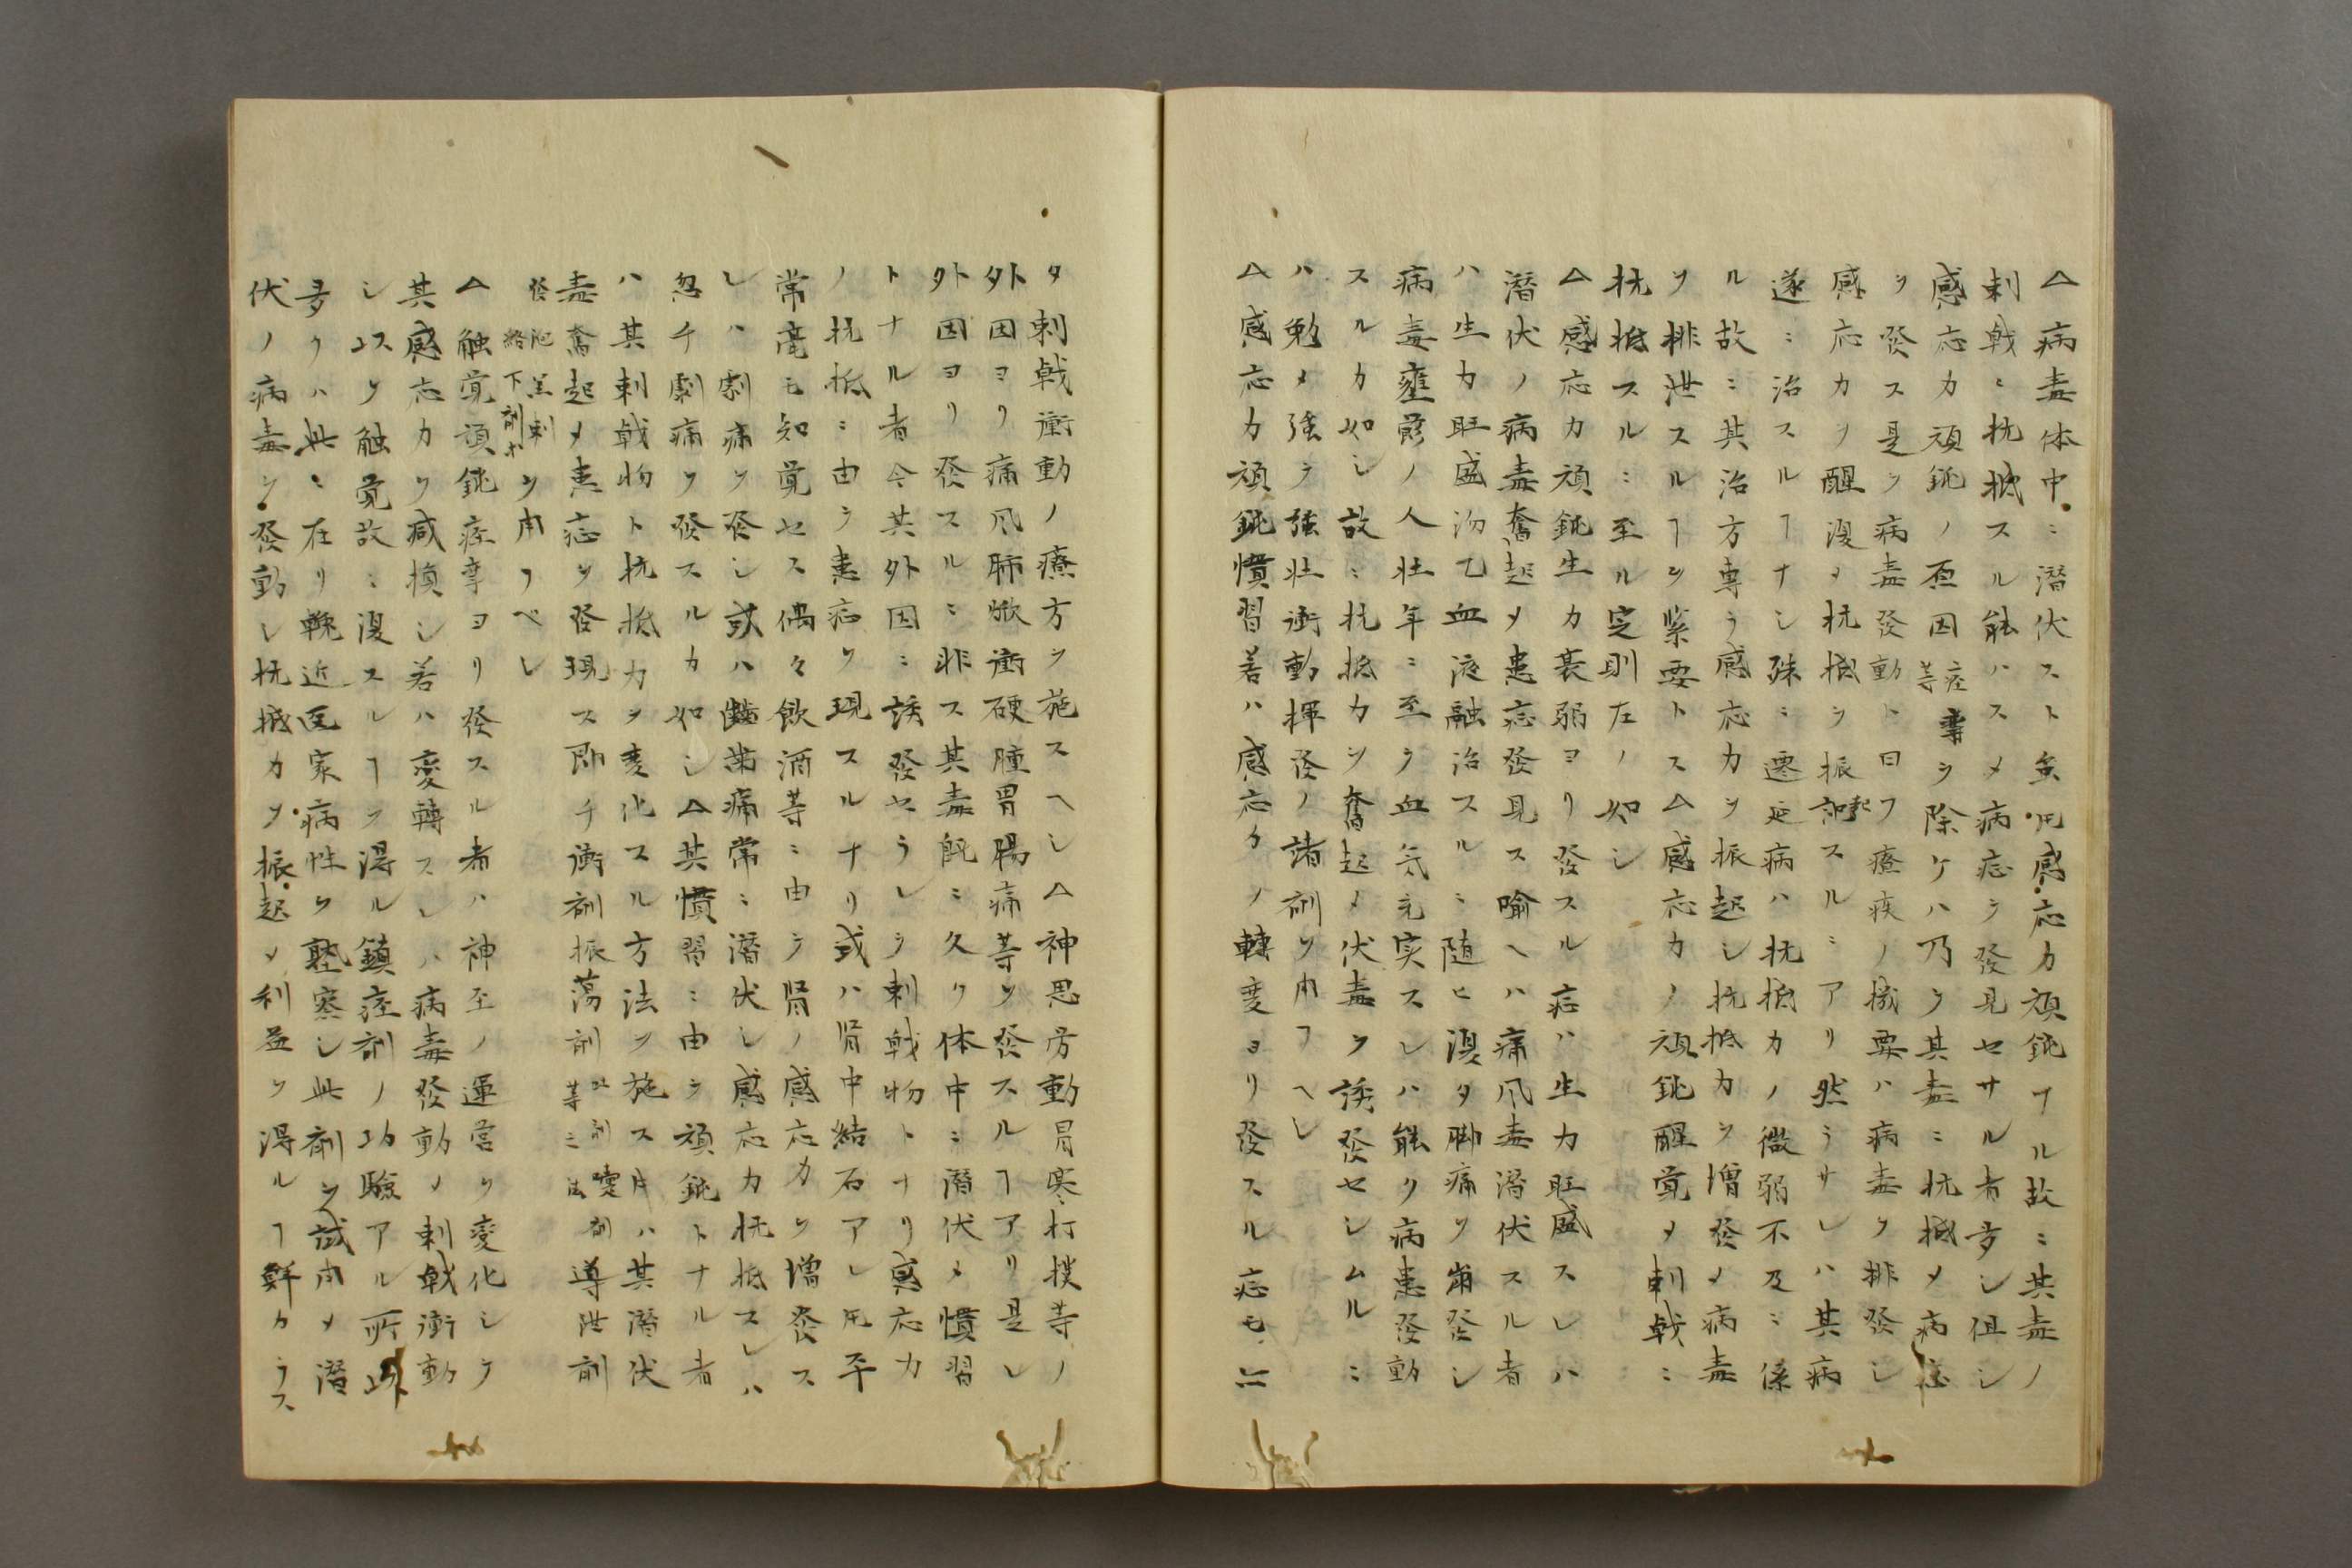 △病毒体中ニ潜伏スト雖𪜈感応力頑鈍ナル故ニ其毒ノ
刺戟ニ抗抵スル能ハスメ病症ヲ發見セサル者多シ但シ
感応力頑鈍ノ原因痙攣等ヲ除ケハ乃ク其毒ニ抗抵メ病症
ヲ發ス是ヲ病毒發動ト曰フ療疾ノ機要ハ病毒ヲ排發シ
感応力ヲ醒復メ抗抵ヲ振起スルニアリ然ラサレハ其病
遂ニ治スルヿナシ殊ニ遷延病ハ抗抵力ノ微弱不及ニ係
ル故ニ其治方専ラ感応力ヲ振起シ抗抵力ヲ増發メ病毒
ヲ排泄スルヿヲ緊要トス△感応力ノ頑鈍醒覚メ刺戟ニ
抗抵スルニ至ル定則左ノ如シ
△感応力頑鈍生力衰弱ヨリ發スル症ハ生力旺盛スレハ
潜伏ノ病毒奮起メ患症發見ス喩ヘハ痛風毒潜伏スル者
ハ生力旺盛沕乙血液融治スルニ随ヒ復タ脚痛ヲ崩發シ
病毒壅滲ノ人壮年ニ至ラ血気充実スレハ能ク病患發動
スルカ如シ故ニ抗抵力ヲ奮起メ伏毒ヲ誘發セシムルニ
ハ勉メ強ラ強壮衝動揮發ノ諸剤ヲ用フヘシ
△感応力頑鈍慣習若ハ感応力ノ轉変ヨリ發スル症モ亦
タ刺戟衝動ノ療方ヲ施スヘシ△神思労動冒寒打撲等ノ
外因ヨリ痛風肺焮衝硬腫胃腸痛等ヲ發スルヿアリ是レ
外因ヨリ發スルニ非ス其毒既ニ久ク体中ニ潜伏メ慣習
トナル者今其外因ニ誘發セラレラ刺戟物トナリ感応力
ノ抗抵ニ由ラ患症ヲ現スルナリ或ハ腎中結石アレ𪜈平
常毫モ知覚セス偶々飲酒等ニ由ラ腎ノ感応力ヲ増發ス
レハ劇痛ヲ發シ或ハ齲歯痛常ニ潜伏シ感応力抗抵スレハ
忽チ劇痛ヲ發スルカ如シ△其慣習ニ由ラ頑鈍トナル者
ハ其刺戟物ト抗抵力ヲ変化スル方法ヲ施ス片ハ其潜伏
毒奮起メ患症ヲ發現ス即チ衝剤振蕩剤吐剤嚔剤等之法導泄剤
發泡芫刺絡下剤ホヲ用フベシ
△触覚頑鈍痙攣ヨリ發スル者ハ神至ノ運営ヲ変化シラ
其感応力ヲ減損シ若ハ変轉スレハ病毒發動メ刺戟衝動
シ以ラ触覚故ニ復スルヿヲ得ル鎮痙剤ノ功驗アル所以
多クハ此ニ在リ輓近医家病性ヲ熟察シ此剤ヲ試用メ潜
伏ノ病毒ヲ發動シ抗抵力ヲ振起メ利益ヲ得ルヿ鮮カラス